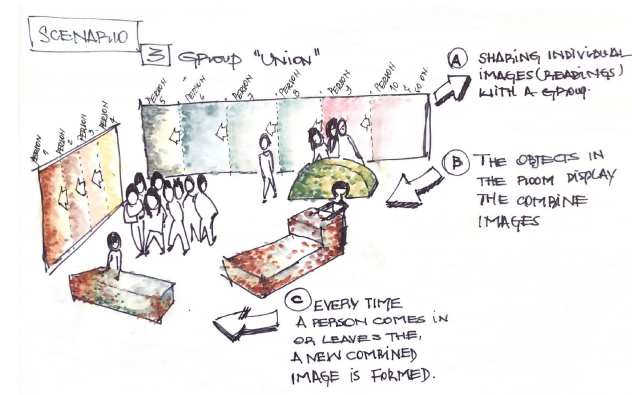 SCENARIO
3 GROUP "UNION"
PERSON 1
PERSON 2
PERSON 3
PERSON 4
PERSON 5
PERSON 6
PERSON 7
PERSON 8
PERSON 9
PERSON 10
& SO ON.
A SHARING INDIVIDUAL
IMAGES (READINGS)
WITH A GROUP.
B THE OBJECTS IN
THE ROOM DISPLAY
THE COMBINE
IMAGES
C EVERY TIME
A PERSON COMES IN
OR LEAVES THE,
A NEW COMBINED
IMAGE IS FORMED.